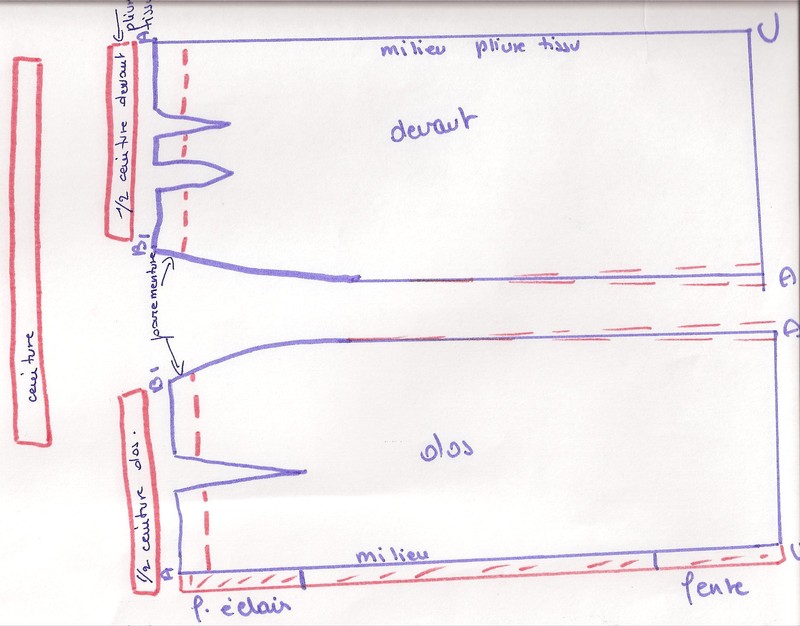 pliure
tissu
A
milieu pliure tissu
U
1/2 ceinture devant
devant
B1
parementure
A
ceinture
A
B1
1/2 ceinture dos.
dos
A
milieu
U
f. éclair
fente